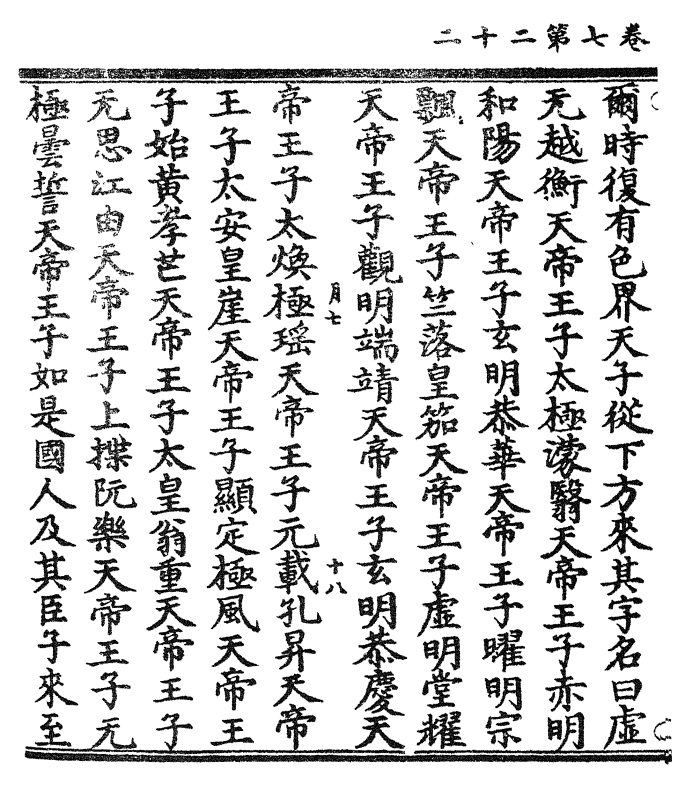 卷七第二十二
爾時復有色界天子從下方來其字名曰虛
无越衡天帝王子太極濛翳天帝王子赤明
和陽天帝王子玄明恭華天帝王子曜明宗
飄天帝王子竺落皇笳天帝王子虛明堂耀
天帝王子觀明端靖天帝王子玄明恭慶天
月七
十八
帝王子太煥極瑶天帝王子元載孔昇天帝
王子太安皇崖天帝王子顯定極風天帝王
子始黃孝芒天帝王子太皇翁重天帝王子
无思江由天帝王子上揲阮樂天帝王子无
極曇誓天帝王子如是國人及其臣子來至